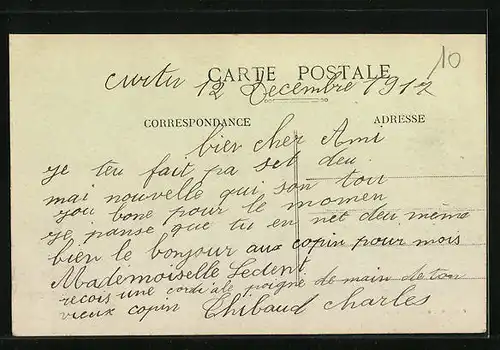 10
CARTE POSTALE
12 Decembre 1917
CORRESPONDANCE ADRESSE
bien cher Ami
je teu fait pa set deu
mai nouvelle qui son tou
jou bone pour le momen
je panse que tu en net deu meme
bien le bonjour aux copin pour mois
Mademoiselle Ledent
recois une cordiale poigne de main de ton
vieux copin Thibaud Charles